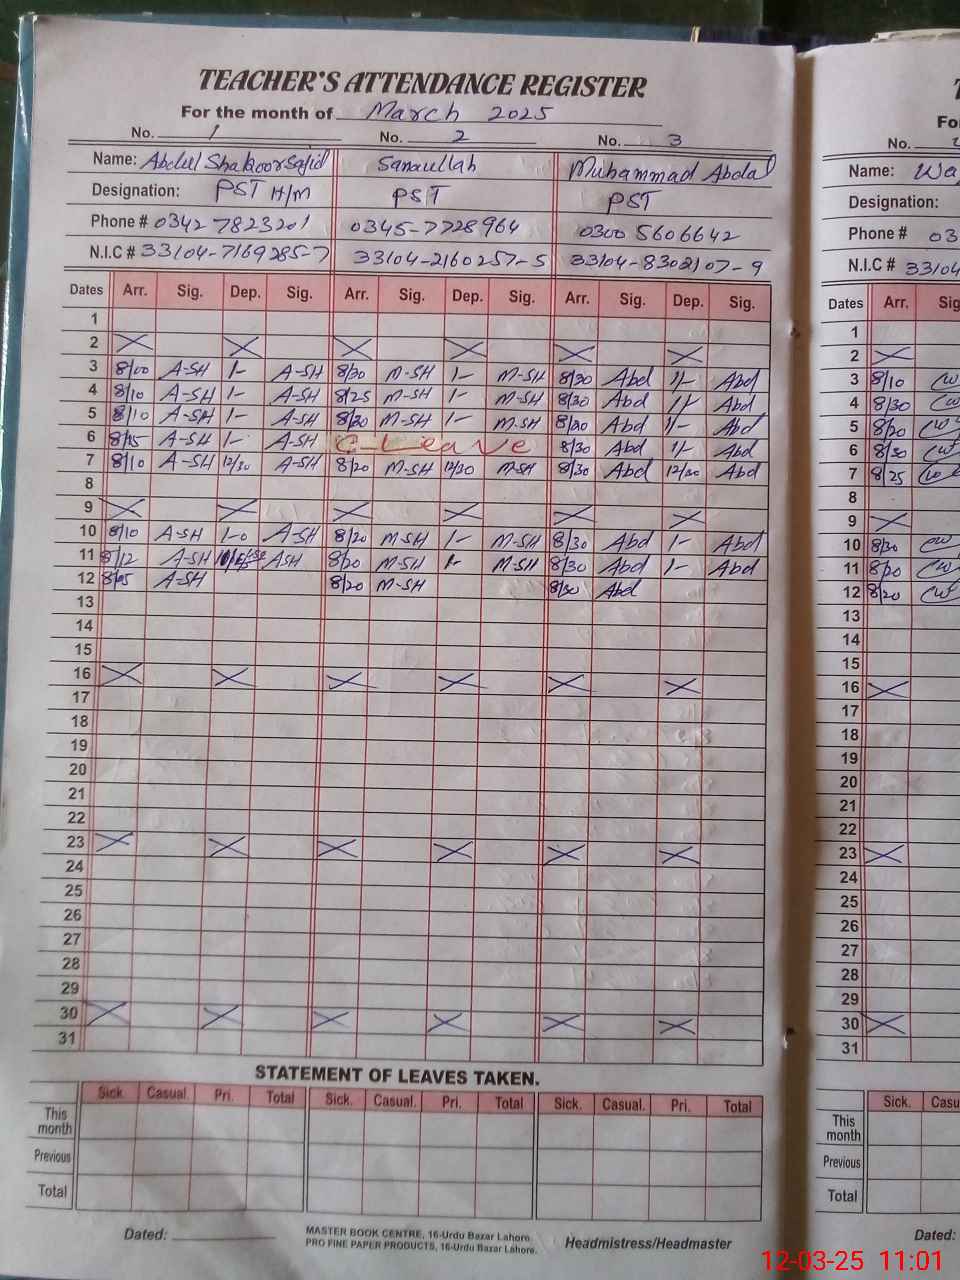 TEACHER'S ATTENDANCE REGISTER
For the month of March 2025
No. 1 No. 2 No. 3
Name: Abdul Shakoor Sajid Sanaullah Muhammad Abdal
Designation: PST H/M PST PST
Phone # 0342 7823201 0345-7728964 0300 5606642
N.I.C # 33104-7169285-7 33104-2160257-5 33104-8302107-9
Dates Arr. Sig. Dep. Sig. Arr. Sig. Dep. Sig. Arr. Sig. Dep. Sig.
1
2
3 8/00 A-SH 1- A-SH 8/30 M-SH 1- M-SH 8/30 Abd 1/- Abd
4 8/10 A-SH 1- A-SH 8/25 M-SH 1- M-SH 8/30 Abd 1/- Abd
5 8/10 A-SH 1- A-SH 8/20 M-SH 1- M-SH 8/20 Abd 1/- Abd
6 8/15 A-SH 1- A-SH C-Leave 8/30 Abd 1/- Abd
7 8/10 A-SH 12/30 A-SH 8/20 M-SH 12/30 M-SH 8/30 Abd 12/30 Abd
8
9
10 8/10 A-SH 1-0 A-SH 8/20 M-SH 1- M-SH 8/30 Abd 1- Abd
11 8/12 A-SH ASH 8/20 M-SH 1- M-SH 8/30 Abd 1- Abd
12 8/05 A-SH 8/20 M-SH 8/30 Abd
13
14
15
16
17
18
19
20
21
22
23
24
25
26
27
28
29
30
31
STATEMENT OF LEAVES TAKEN.
Sick. Casual. Pri. Total Sick. Casual. Pri. Total Sick. Casual. Pri. Total
This month
Previous
Total
Dated:
MASTER BOOK CENTRE, 16-Urdu Bazar Lahore.
PRO FINE PAPER PRODUCTS, 16-Urdu Bazar Lahore.
Headmistress/Headmaster
No.
Name:
Designation:
Phone # 03
N.I.C # 33104
Dates Arr.
1
2
3 8/10
4 8/30
5 8/20
6 8/30
7 8/25
8
9
10 8/30
11 8/20
12 8/20
13
14
15
16
17
18
19
20
21
22
23
24
25
26
27
28
29
30
31
Sick.
This month
Previous
Total
Dated:
12-03-25 11:01